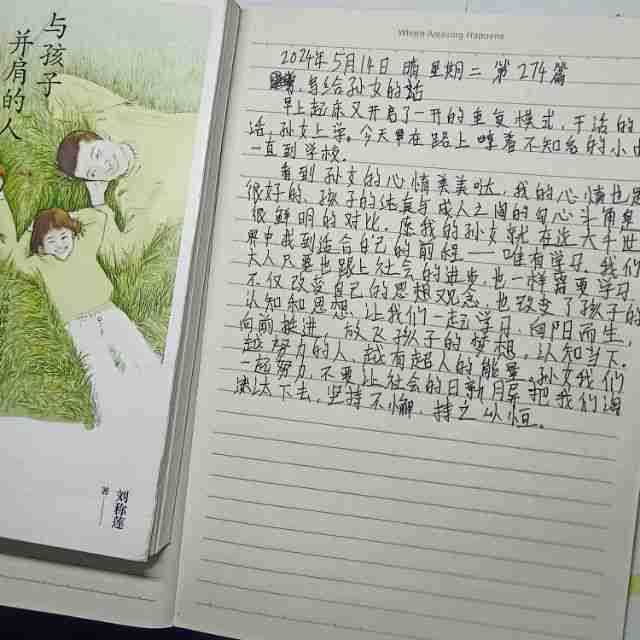 与孩子
并肩的人
刘称莲
著
Where Amazing Happens
2024年5月14日 晴 星期二 第274篇
写给孙女的话
早上起床又开启了一天的重复模式,干活的
活,孙女上学。今天早在路上哼着不知名的小曲
一直到学校。
看到孙女的心情美美哒,我的心情也是
很好的、孩子的纯真与成人之间的勾心斗角是
很鲜明的对比。愿我的孙女就在这大千世
界中找到适合自己的前程——唯有学习,我们
大人只要也跟上社会的进步,也一样需要学习,
不仅改变自己的思想观念,也改变了孩子的
认知和思想,让我们一起学习,向阳而生,
向前挺进,放飞孩子的梦想,认知当下。
越努力的人,越有超人的能量。孙女我们
一起努力,不要让社会的日新月异把我们
淘汰下去,坚持不懈,持之以恒。